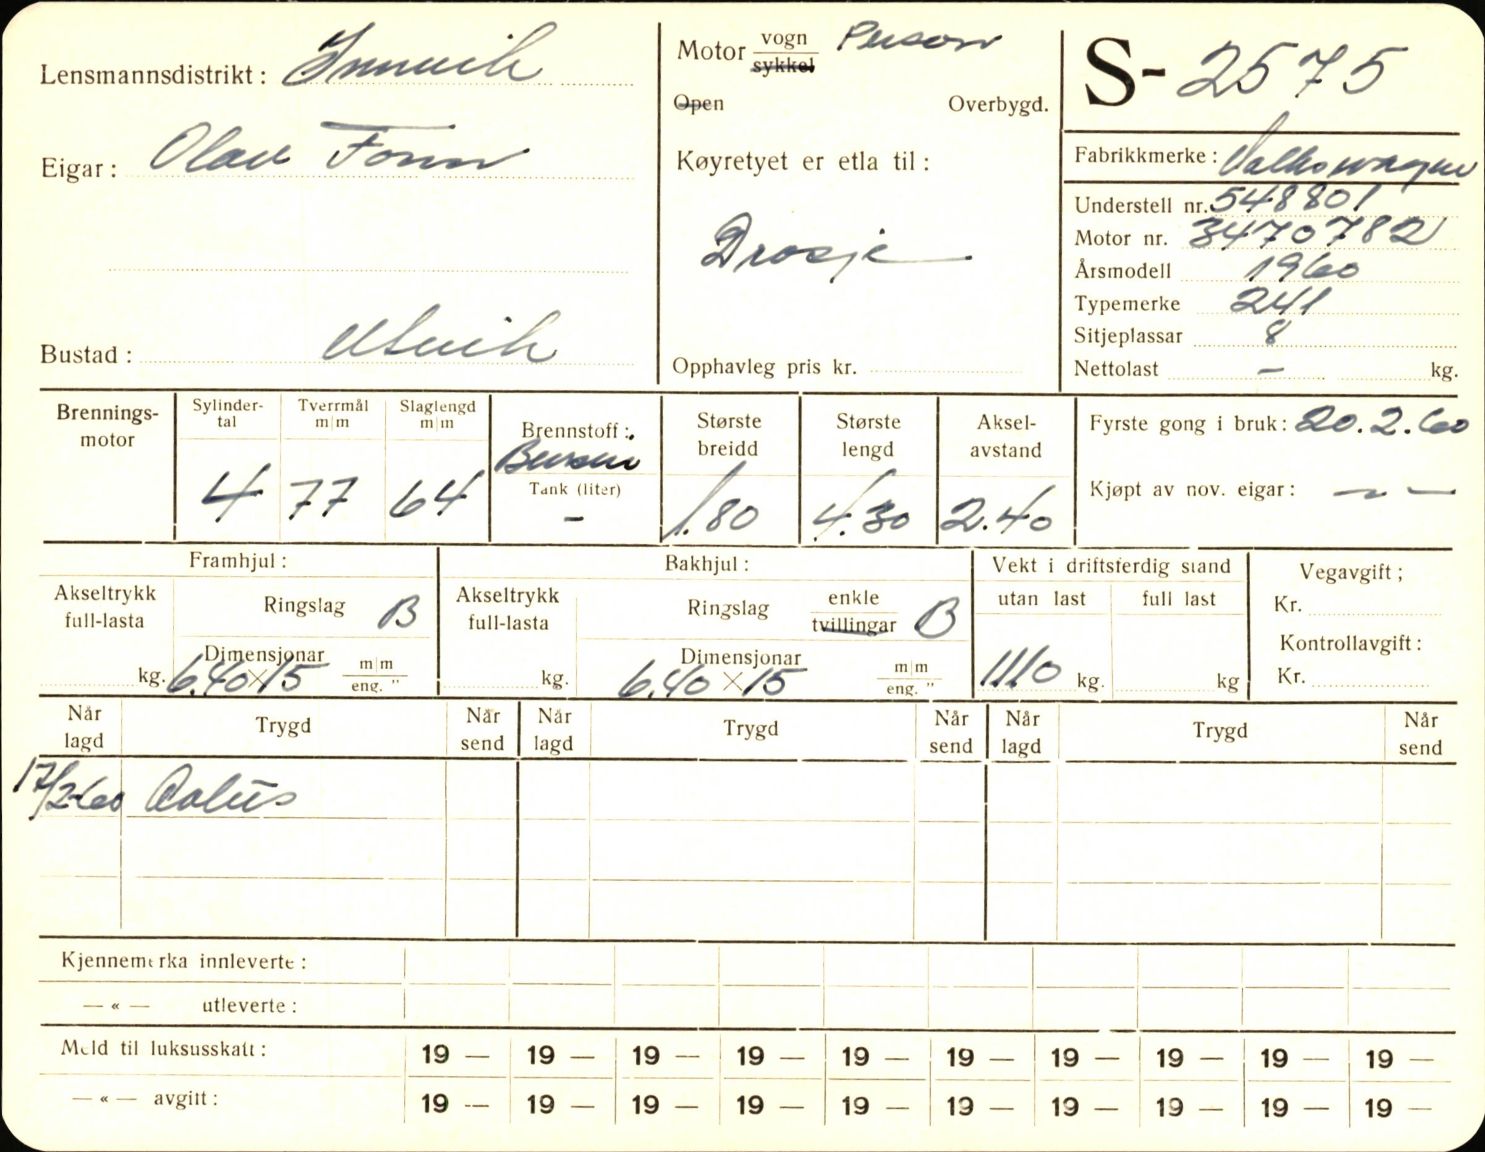 Lensmannsdistrikt: Innvik
Eigar: Olav Fonn
Bustad: Utvik
Motor vogn Person
sykkel
Open Overbygd.
Køyretyet er etla til:
Drosje
Opphavleg pris kr.
S- 2575
Fabrikkmerke: Volkswagen
Understell nr. 548801
Motor nr. 3470782
Årsmodell 1960
Typemerke 241
Sitjeplassar 8
Nettolast — kg.
Brennings-
motor
Sylinder-
tal
4
Tverrmål
m|m
77
Slaglengd
m|m
64
Brennstoff:
Bensin
Tank (liter)
-
Største
breidd
1.80
Største
lengd
4.30
Aksel-
avstand
2.40
Fyrste gong i bruk: 20.2.60
Kjøpt av nov. eigar: — " —
Framhjul:
Akseltrykk
full-lasta
kg.
Ringslag B
Dimensjonar
6.40 × 15 m|m
eng. "
Bakhjul:
Akseltrykk
full-lasta
kg.
Ringslag enkle B
tvillingar
Dimensjonar
6.40 × 15 m|m
eng. "
Vekt i driftsferdig stand
utan last full last
1110 kg. kg
Vegavgift;
Kr.
Kontrollavgift:
Kr.
Når
lagd Trygd Når
send Når
lagd Trygd Når
send Når
lagd Trygd Når
send
17/2-60
Kjennemerka innleverte:
— « — utleverte:
Meld til luksusskatt: 19 — 19 — 19 — 19 — 19 — 19 — 19 — 19 — 19 — 19 —
— « — avgift: 19 — 19 — 19 — 19 — 19 — 19 — 19 — 19 — 19 — 19 —